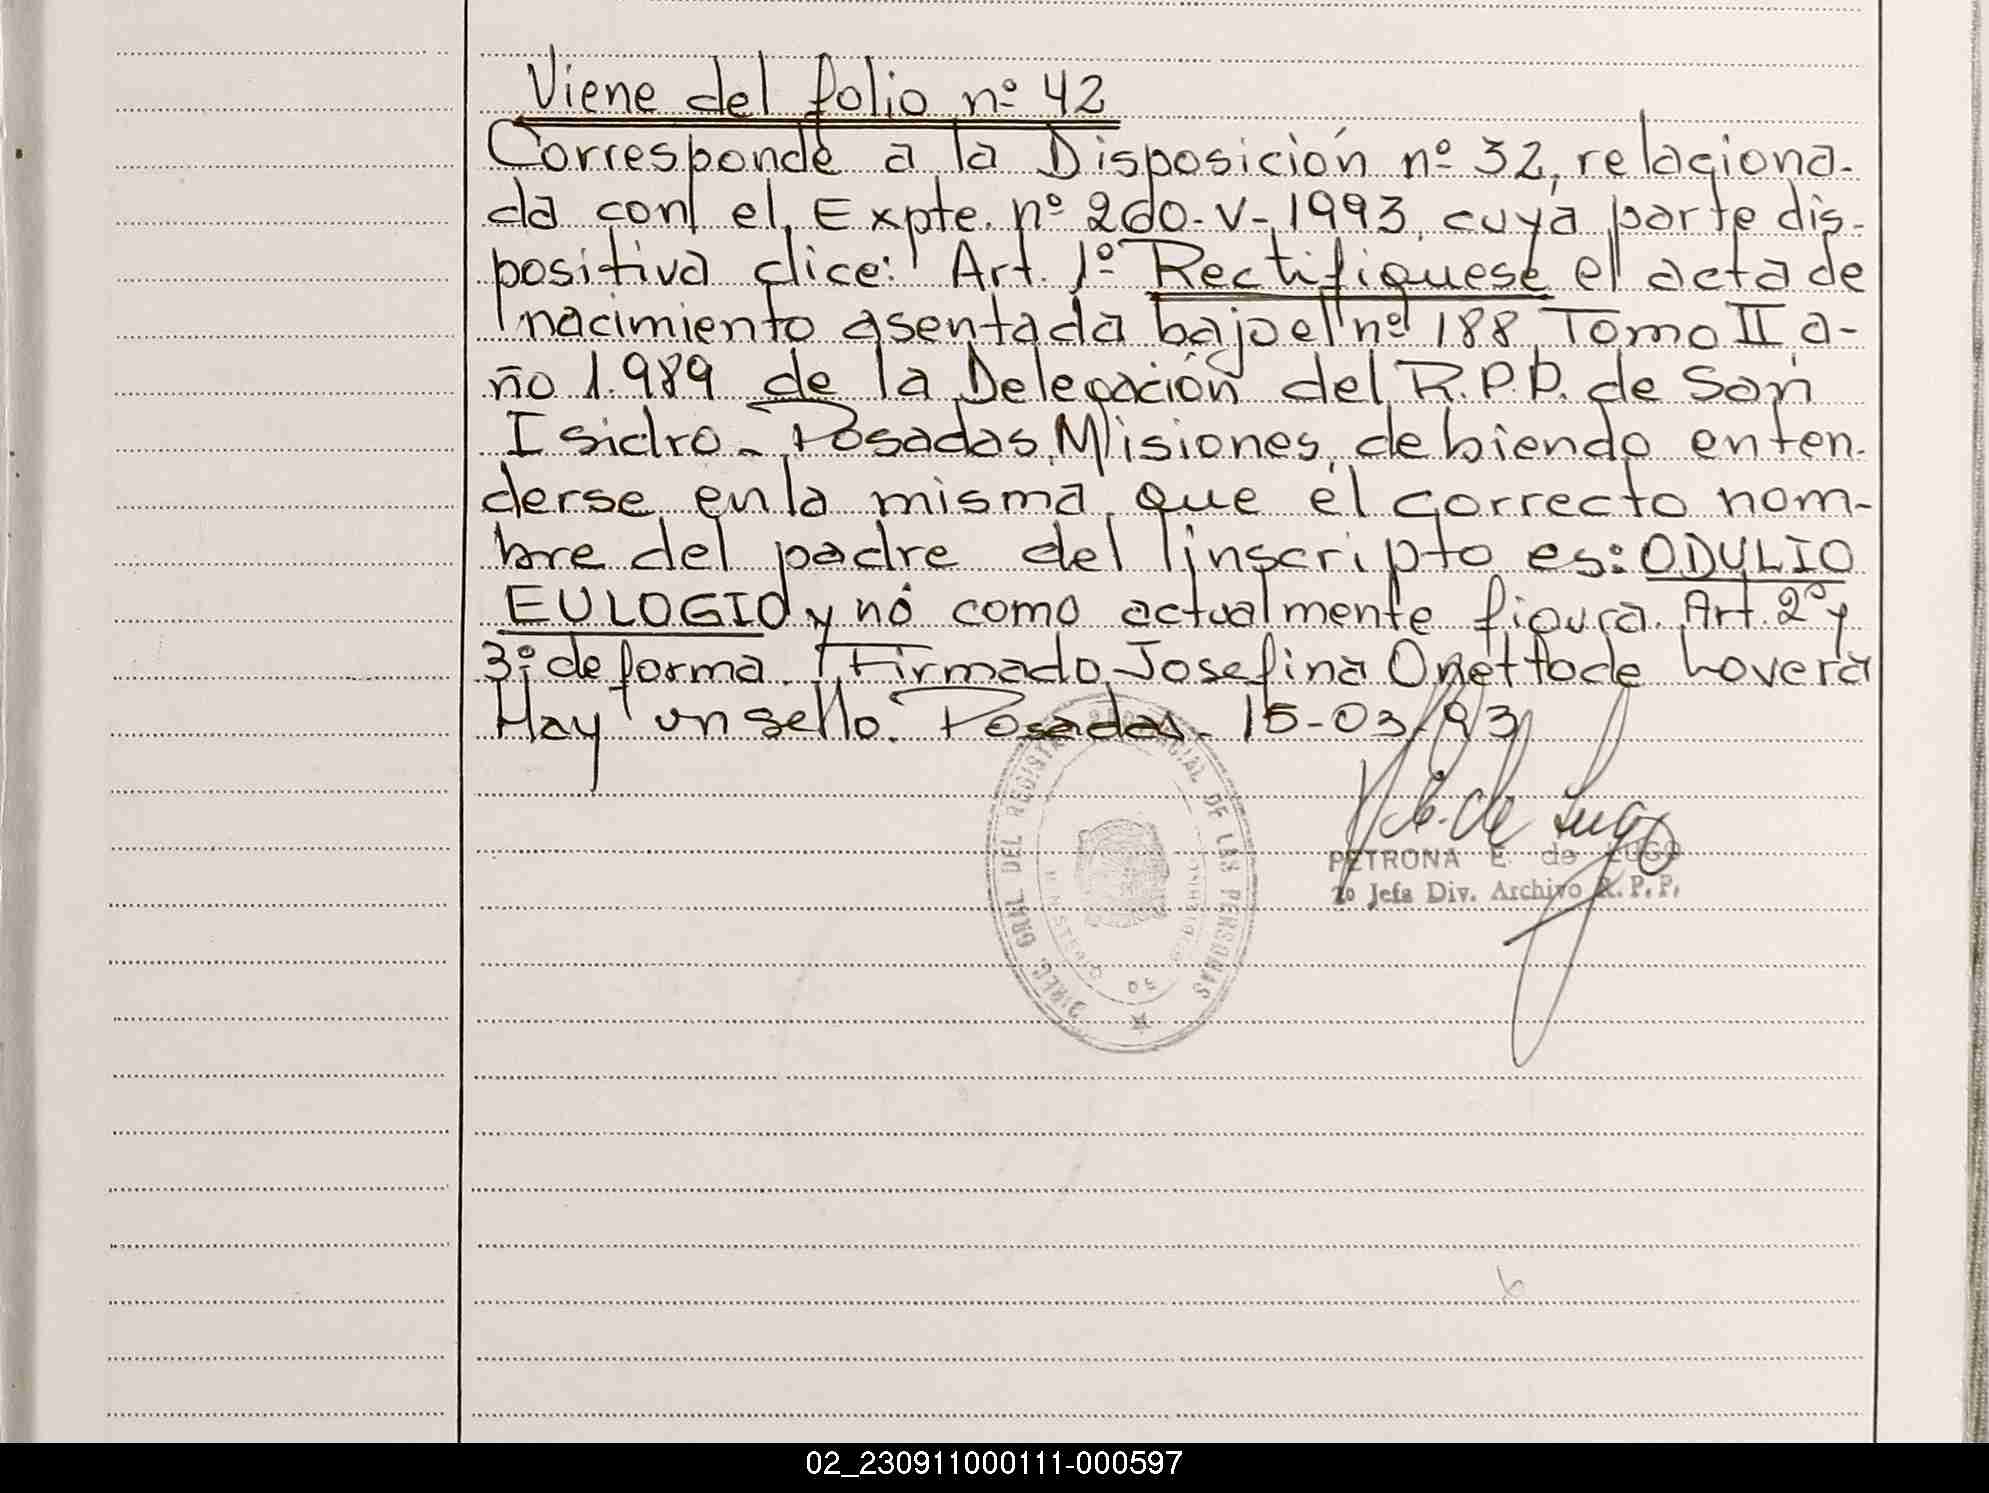 Viene del folio nº 42
Corresponde a la Disposición nº 32, relaciona-
da con el Expte. nº 260-V-1993, cuya parte dis-
positiva dice: Art. 1º Rectifiquese el acta de
nacimiento asentada bajo el nº 188 Tomo II a-
ño 1.989 de la Delegación del R.P.P. de San
Isidro - Posadas, Misiones, debiendo enten-
derse en la misma que el correcto nom-
bre del padre del inscripto es: ODULIO
EULOGIO y nó como actualmente figura. Art. 2º y
3º: de forma. Firmado Josefina Onetto de Lovera
Hay un sello. Posadas. 15-03-93
DIREC. GRAL DEL REGISTRO PROVINCIAL DE LAS PERSONAS
P. E. de Lugo
PETRONA E. de LUGO
Jefa Div. Archivo R.P.P.
02_230911000111-000597